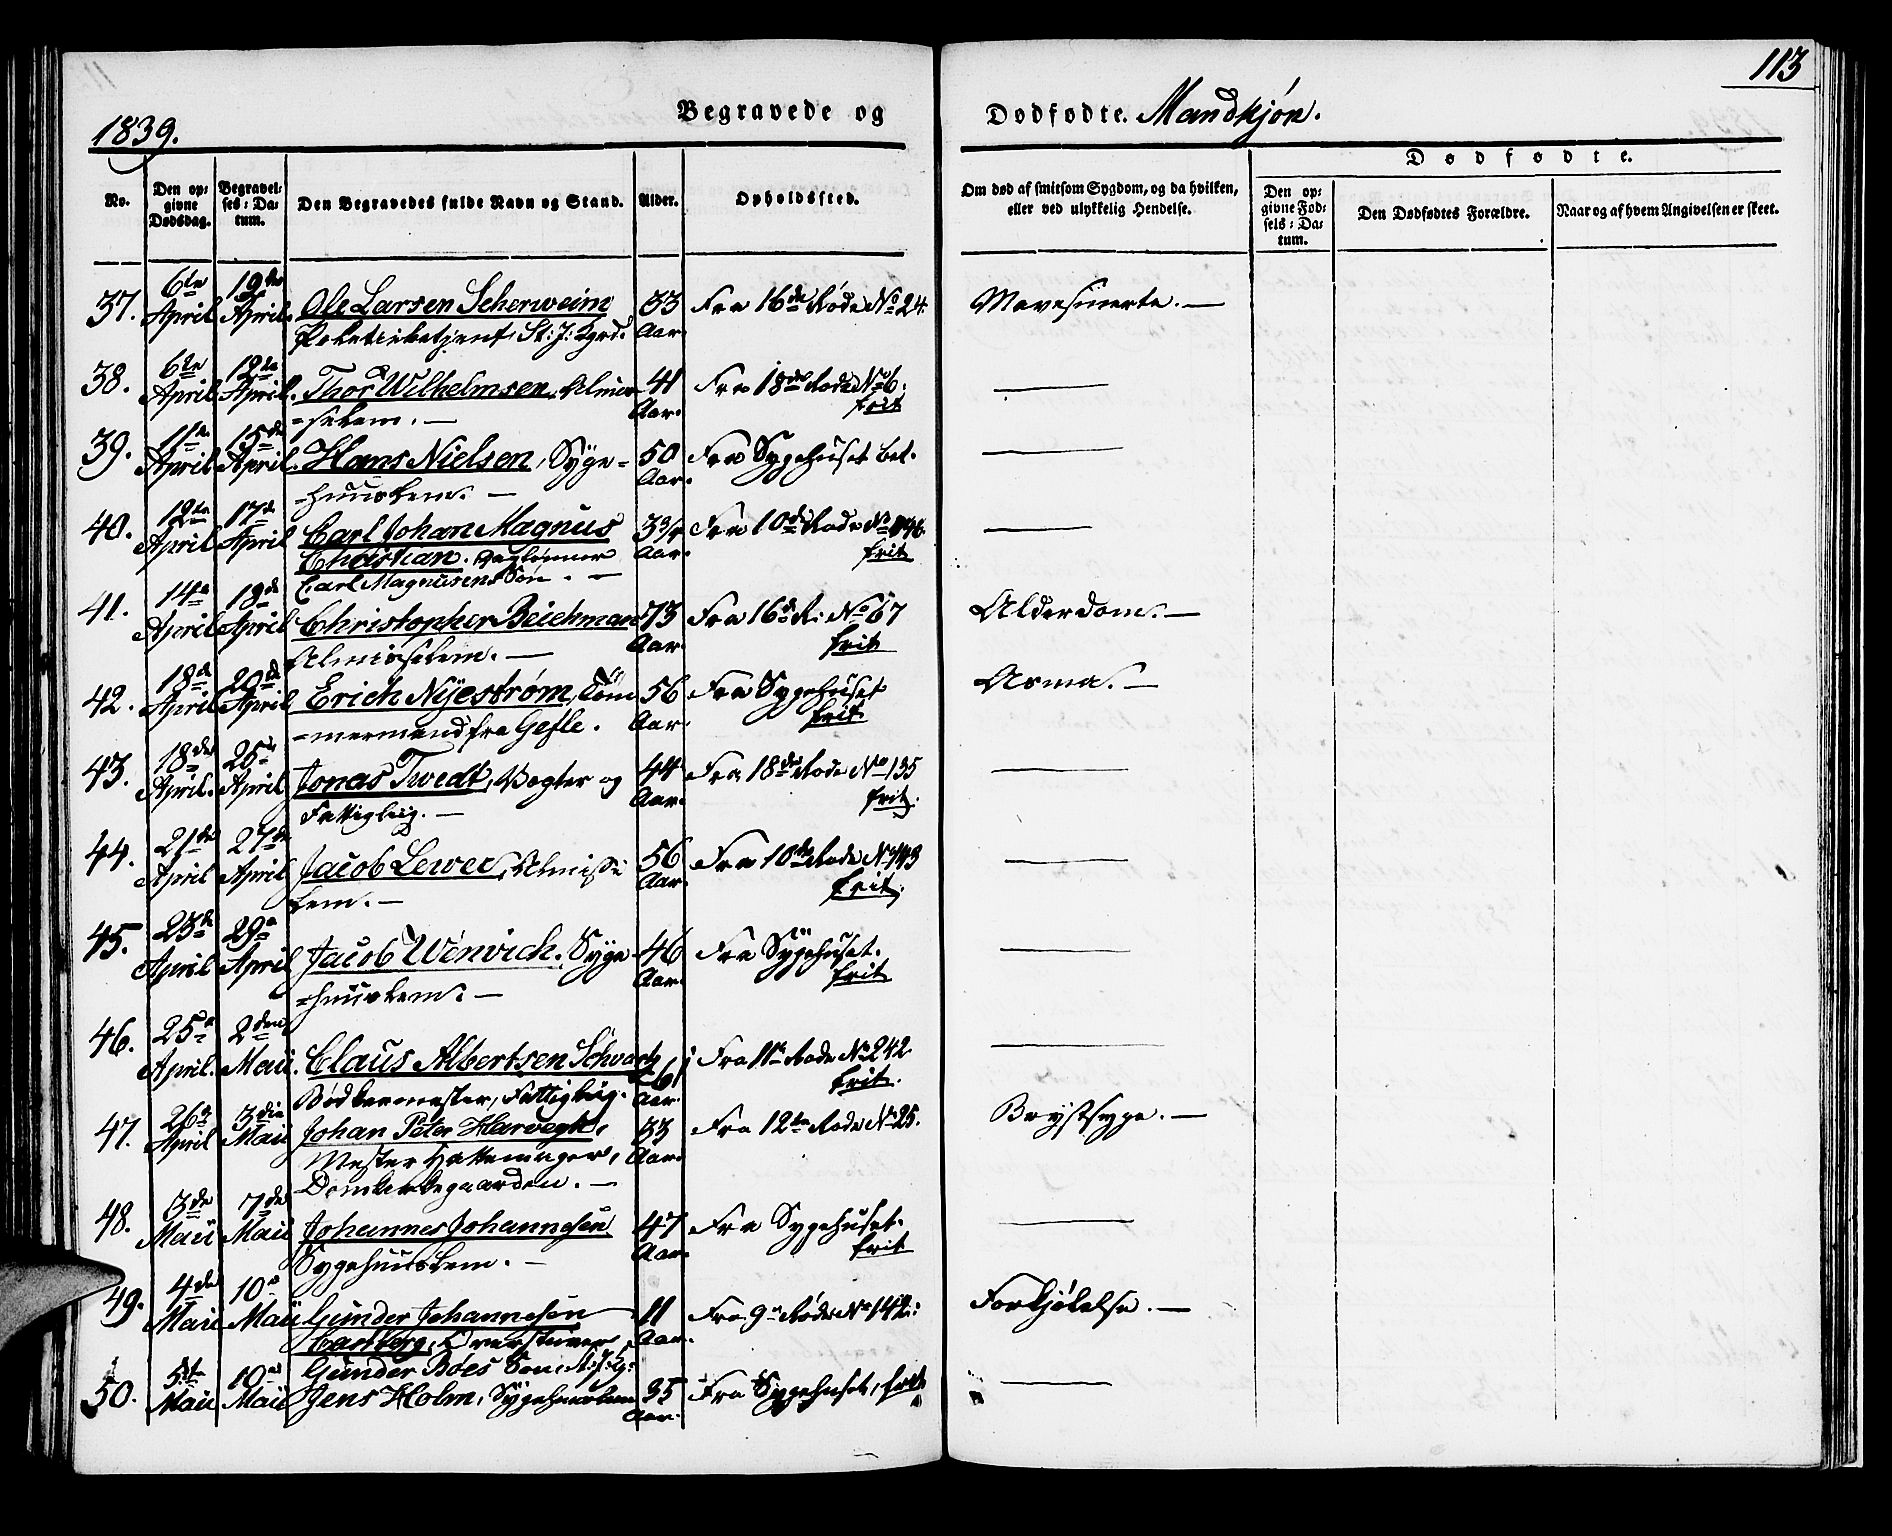 113
1839.
Begravede og Dødfødte. Mandkjøn.
No.
Den opgivne Dødsdag.
Begravelses-Datum.
Den Begravedes fulde Navn og Stand.
Alder.
Opholdssted.
Om død af smitsom Sygdom, og da hvilken, eller ved ulykkelig Hendelse.
Dødfødte.
Den opgivne Fødsels-Datum.
Den Dødfødtes Forældre.
Naar og af hvem Angivelsen er skeet.
37. 6te April 19de April. Ole Larsen Scherweim 33 Aar Fra 16de Rode No 24. Mavesmerte. —
St: J: Kgrd.
38. 6te April 12te April. Thor Wilhelmsen, Almis- 41 Aar. Fra 18de Rode No 6. frit —
=selem. —
39. 11te April 15de April. Hans Nielsen, Syge= 50 Aar. Fra Sygehuset bet. —
=huuslem. —
40. 12te April 17de April Carl Johan Magnus 3 3/4 Aar. Fra 10de Rode No frit —
Christian. Dagleønner
Carl Magnusens Søn. —
41. 14de April 18de April Christopher Beichman 73 Aar. Fra 16de R: No 67 frit Alderdom. —
Almisselem. —
42. 18de April 20de April Erich Nÿestrøm, Tøm 56 Aar. Fra Sygehuset frit. Asma. —
=mermand fra Gefle.
43. 18de April. 25de April Jonas Twedt, Vegter og 44 Aar. Fra 18de Rode No 135 frit. —
Fattiglig. —
44. 21de April 27de April Jacob Lewer, Almisse 56 Aar. Fra 10de Rode No 143 frit. —
lem. —
45. 23de April 29de April Jacob Wenvich. Syge 46 Aar. Fra Sÿgehuset. frit —
=huuslem. —
46. 25de April. 2den Maii. Claus Albertsen Schwartz 61 Aar. Fra 11te Rode No 242. frit. —
Bødkermester, Fattiglig.
47. 26de April 3die Maii Johan Peter Harwegh, 33 Aar. Fra 12te Rode No 25. Brystsyge. —
Mester Hattemager,
Domkirkegaarden. —
48. 3de Maii 7de Maii Johannes Johannesen 47 Aar. Fra Sygehuset. frit —
Sygehuuslem. —
49. 4de Maii 10de Maii Gunder Johannesen 11 Aar. Fra 9de Rode No 142: Forkjølelse. —
Carlberg,
Gunder Bøes Søn. St: J: Kg:
50. 5te Maii 10de Maii Jens Holm, Sÿgehuuslem 35 Aar. Fra Sygehuset, frit —